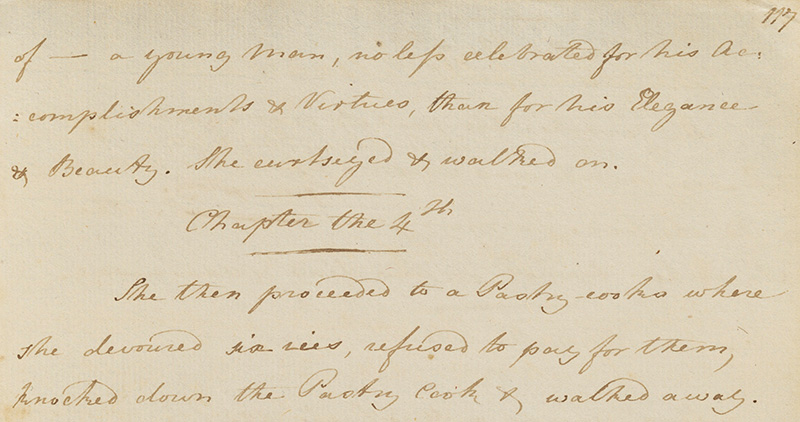 117
of — a young Man, no less celebrated for his Ac:
:complishments & Virtues, than for his Elegance
& Beauty. She curtseyed & walked on.
Chapter the 4th
She then proceeded to a Pastry-cooks where
she devoured six ices, refused to pay for them,
knocked down the Pastry Cook & walked away.